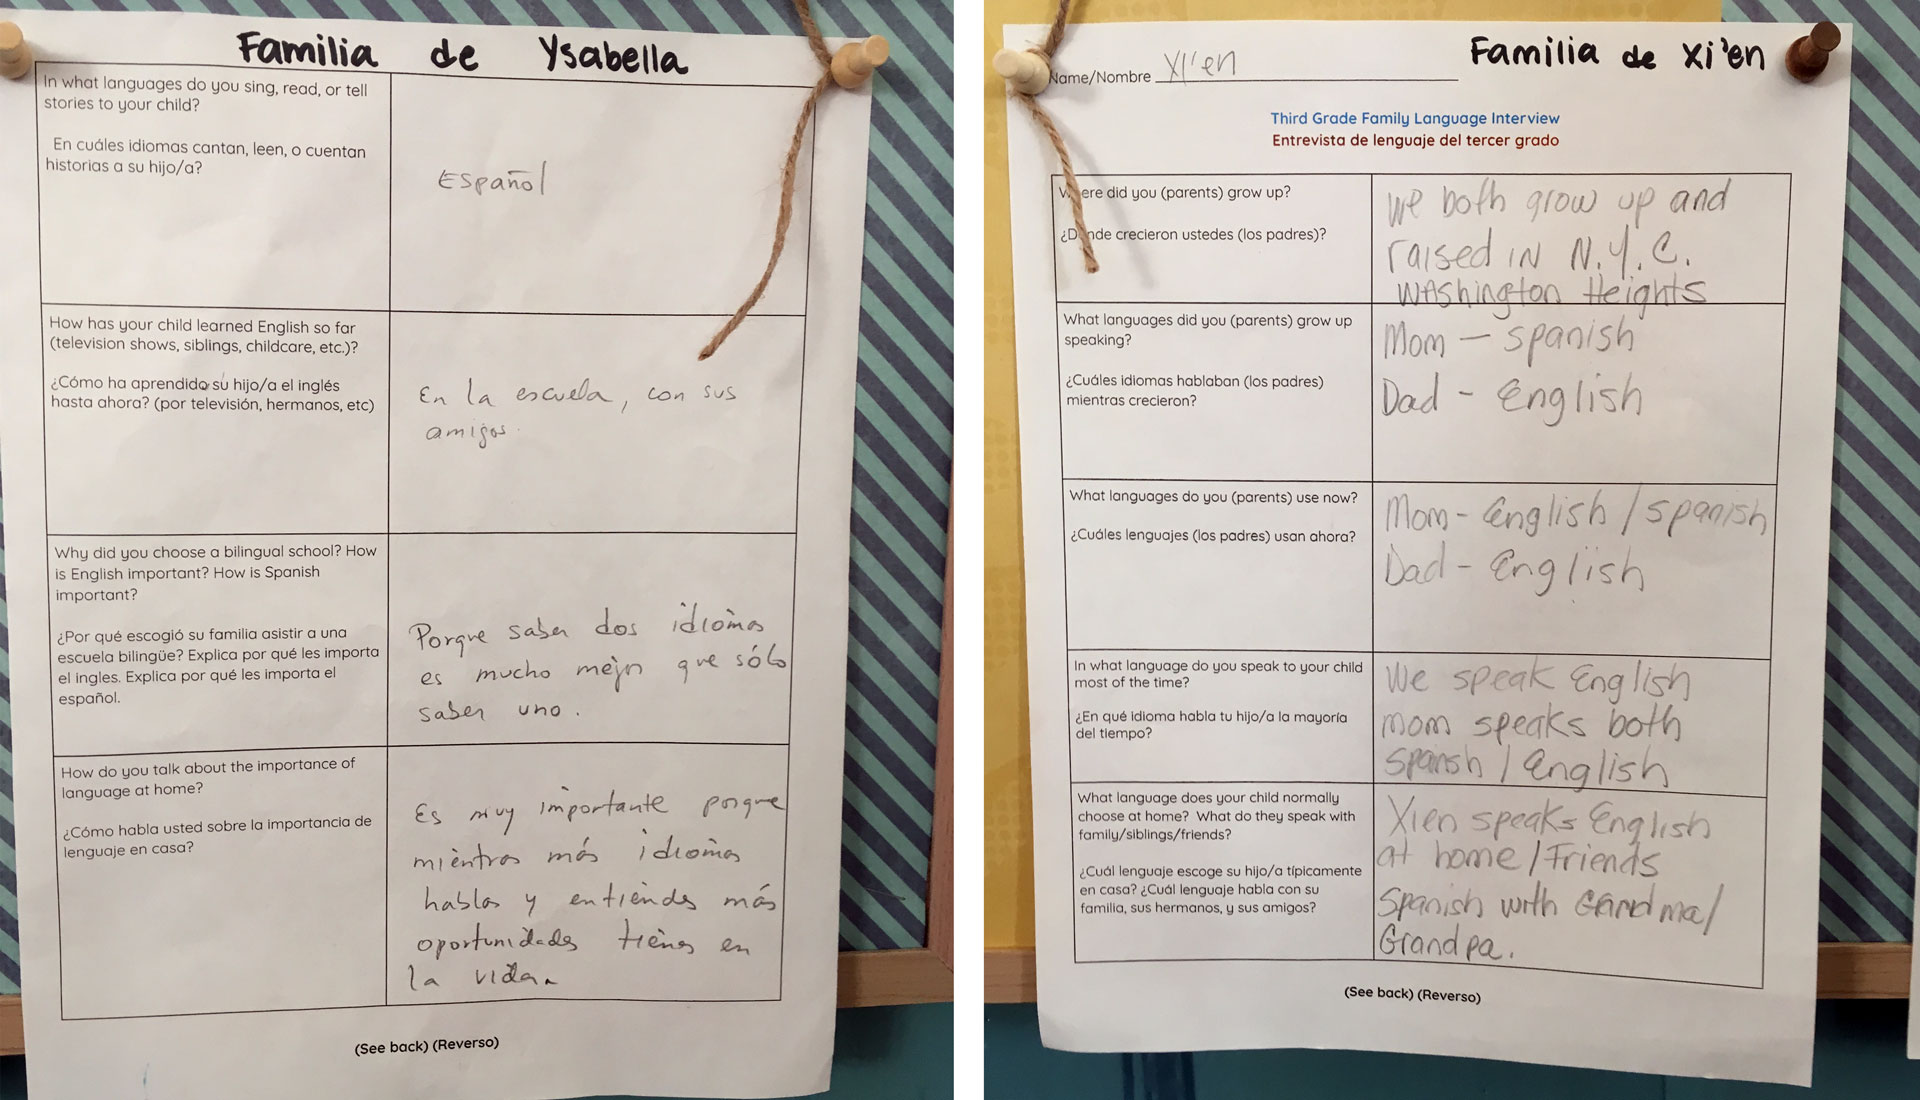 Familia de Ysabella
In what languages do you sing, read, or tell
stories to your child?
En cuáles idiomas cantan, leen, o cuentan
historias a su hijo/a?
Español
How has your child learned English so far
(television shows, siblings, childcare, etc.)?
¿Cómo ha aprendido su hijo/a el inglés
hasta ahora? (por televisión, hermanos, etc)
En la escuela, con sus
amigos.
Why did you choose a bilingual school? How
is English important? How is Spanish
important?
¿Por qué escogió su familia asistir a una
escuela bilingüe? Explica por qué les importa
el ingles. Explica por qué les importa el
español.
Porque saber dos idiomas
es mucho mejor que sólo
saber uno.
How do you talk about the importance of
language at home?
¿Cómo habla usted sobre la importancia de
lenguaje en casa?
Es muy importante porque
mientras más idiomas
hablas y entiendes más
oportunidades tienes en
la vida.
(See back) (Reverso)
Familia de Xi'en
Name/Nombre Xi'en
Third Grade Family Language Interview
Entrevista de lenguaje del tercer grado
Where did you (parents) grow up?
¿Dónde crecieron ustedes (los padres)?
We both grow up and
raised in N.Y.C.
Washington Heights
What languages did you (parents) grow up
speaking?
¿Cuáles idiomas hablaban (los padres)
mientras crecieron?
Mom – Spanish
Dad - English
What languages do you (parents) use now?
¿Cuáles lenguajes (los padres) usan ahora?
Mom - English / Spanish
Dad - English
In what language do you speak to your child
most of the time?
¿En qué idioma habla tu hijo/a la mayoría
del tiempo?
We speak English
mom speaks both
Spanish / English
What language does your child normally
choose at home? What do they speak with
family/siblings/friends?
¿Cuál lenguaje escoge su hijo/a típicamente
en casa? ¿Cuál lenguaje habla con su
familia, sus hermanos, y sus amigos?
Xien speaks English
at home / Friends
Spanish with Grandma/
Grandpa.
(See back) (Reverso)